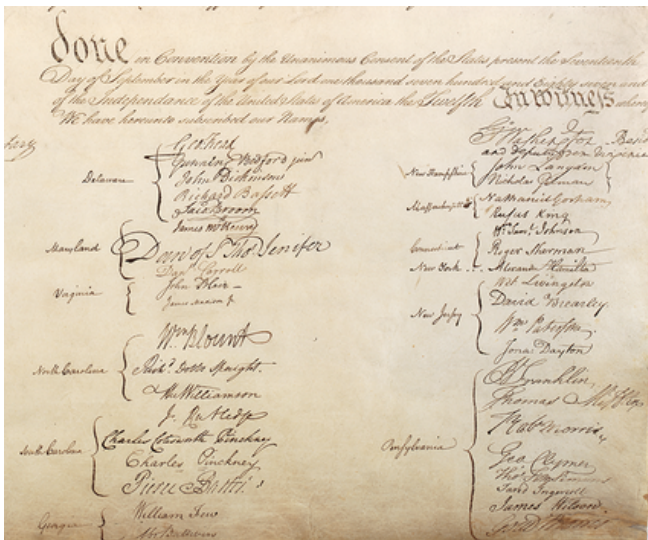 done in Convention by the Unanimous Consent of the States present the Seventeenth
Day of September in the Year of our Lord one thousand seven hundred and Eighty seven and
of the Independance of the United States of America the Twelfth In Witness whereof
We have hereunto subscribed our Names,
Delaware
Geo: Read
Gunning Bedford jun
John Dickinson
Richard Bassett
Jaco: Broom
Maryland
James McHenry
Dan of St Thos. Jenifer
Danl Carroll
Virginia
John Blair—
James Madison Jr
North Carolina
Wm Blount
Richd. Dobbs Spaight.
Hu Williamson
South Carolina
J. Rutledge
Charles Cotesworth Pinckney
Charles Pinckney
Pierce Butler.
Georgia
William Few
Abr Baldwin
Go: Washington Presidt
and deputy from Virginia
New Hampshire
John Langdon
Nicholas Gilman
Massachusetts
Nathaniel Gorham
Rufus King
Connecticut
Wm: Saml. Johnson
Roger Sherman
New York . . .
Alexander Hamilton
New Jersey
Wil: Livingston
David Brearley.
Wm Paterson.
Jona: Dayton
Pensylvania
B Franklin
Thomas Mifflin
Robt Morris
Geo. Clymer
Thos. FitzSimons
Jared Ingersoll
James Wilson.
Gouv Morris